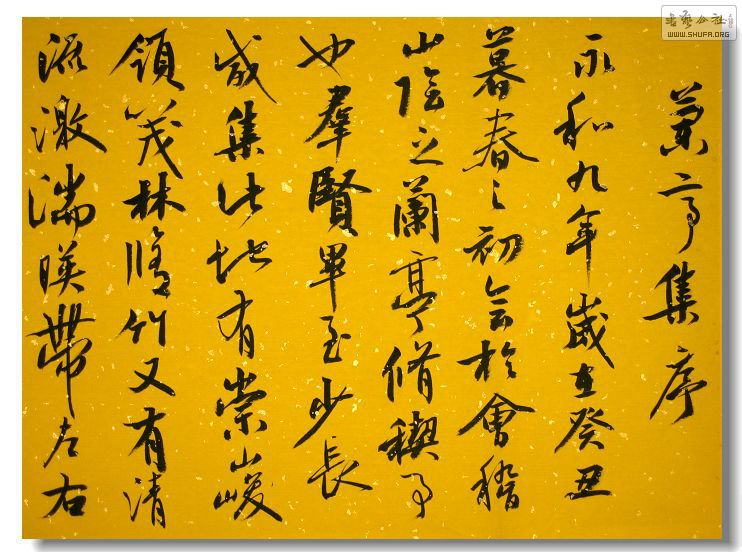 蘭亭集序
永和九年歲在癸丑
暮春之初會於會稽
山陰之蘭亭脩稧事
也羣賢畢至少長
咸集此地有崇山峻
領茂林脩竹又有清
流激湍暎帶左右
书艺公社
WWW.SHUFA.ORG